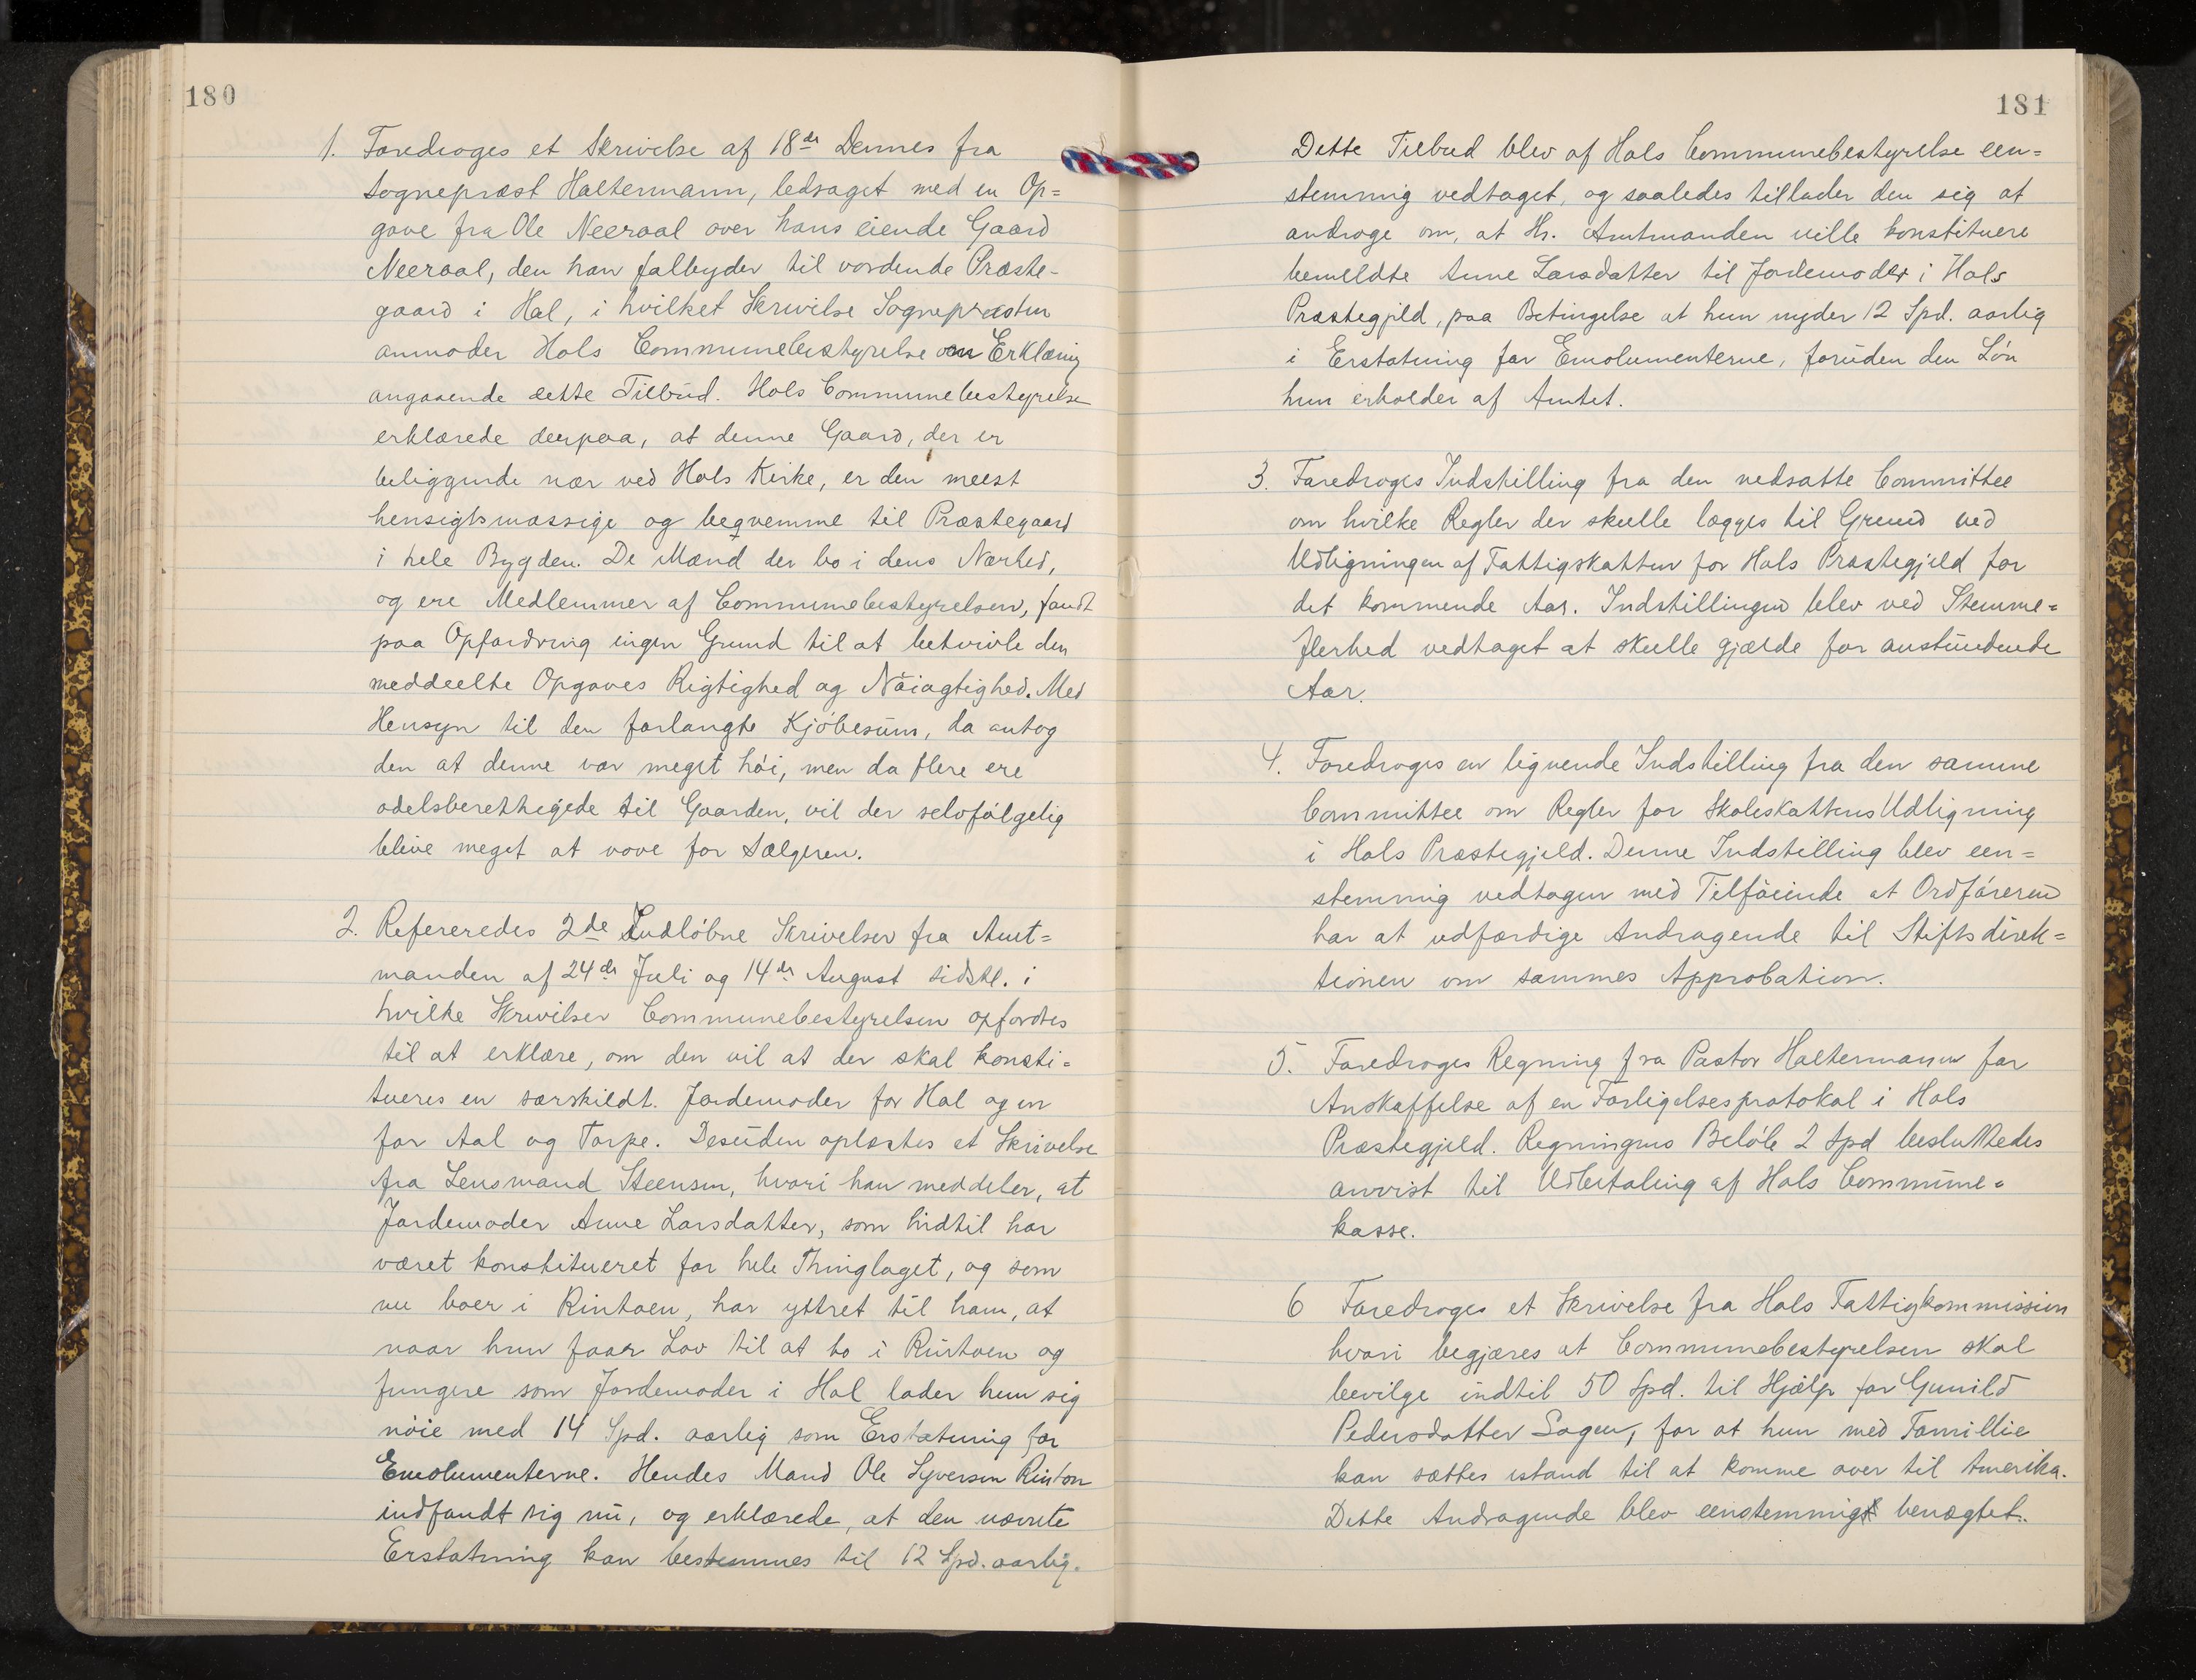 180
1. Foredroges et Skrivelse af 18de Dennes fra
Sognepræst Haltermann, ledsaget med en Op=
gave fra Ole Neeraal over hans eiende Gaard
Neeraal, den han falbyder til vordende Præste-
gaard i Hal, i hvilket Skrivelse Sognepræsten
anmoder Hols Communebestyrelse om Erklæring
angaaende dette Tilbud. Hols Communebestyrelse
erklærede derpaa, at denne Gaard, der er
beliggende nær ved Hols Kirke, er den meest
hensigtsmæssige og beqvemme til Præstegaard
i hele Bygden. De Mænd der bo i dens Nærhed,
og ere Medlemmer af Communebestyrelsen, fandt
paa Opfordring ingen Grund til at betvivle den
meddeelte Opgaves Rigtighed og Nöiagtighed. Med
Hensyn til den forlangte Kjöbesum, da antog
den at denne var meget höi, men da flere ere
odelsberettigede til Gaarden, vil der selvfölgelig
blive meget at vove for Sælgeren.
2. Refereredes 2de Indløbne Skrivelser fra Amt=
manden af 24de Juli og 14de August sidstl. i
hvilke Skrivelser Communebestyrelsen opfordres
til at erklære, om den vil at der skal konsti=
tueres en særskildt Jordemoder for Hal og en
for Aal og Torpe. Desuden oplæstes et Skrivelse
fra Lensmand Steensen, hvori han meddeler, at
Jordemoder Anne Larsdatter, som hidtil har
været konstitueret for hele Thinglaget, og som
nu boer i Rintoen, har yttret til ham, at
naar hun faaer Lov til at bo i Rintoen og
fungere som Jordemoder i Hol lader hun sig
nöie med 14 Spd. aarlig som Erstatning for
Emolumenterne. Hendes Mand Ole Syversen Rinton
indfandt sig nu, og erklærede, at den nævnte
Erstatning kan bestemmes til 12 Spd. aarlig.
181
Dette Tilbud blev af Hols Communebestyrelse een=
stemmig vedtaget, og saaledes tillader den sig at
androge om, at Hr. Amtmanden ville konstituere
bemeldte Anne Larsdatter til Jordemoder i Hols
Præstegjeld, paa Betingelse at hun nyder 12 Spd. aarlig
i Erstatning for Emolumenterne, foruden den Lön
hun erholder af Amtet.
3. Foredroges Indstilling fra den nedsatte Committee
om hvilke Regler der skulle lægges til Grund ved
Udligningen af Fattigskatten for Hols Præstegjeld for
det kommende Aar. Indstillingen blev ved Stemme=
flerhed vedtaget at skulle gjælde for anstundende
Aar.
4. Foredroges en lignende Indstilling fra den samme
Committee om Regler for Skoleskattens Udligning
i Hols Præstegjeld. Denne Indstilling blev een=
stemmig vedtagen med Tilföiende at Ordföreren
har at udfærdige Andragende til Stiftsdirek=
tionen om sammes Approbation.
5. Foredroges Regning fra Pastor Haltermann for
Anskaffelse af en Forligelsesprotokol i Hols
Præstegjeld. Regningens Belöb 2 Spd besluttedes
anvist til Udbetaling af Hols Commune=
kasse.
6 Foredroges et Skrivelse fra Hols Fattigkommission
hvori begjæres at Communebestyrelsen skal
bevilge indtil 50 Spd. til Hjælp for Gunild
Pedersdatter Sagen, for at hun med Famillie
kan sættes istand til at komme over til Amerika.
Dette Andragende blev eenstemmigt benægtet.